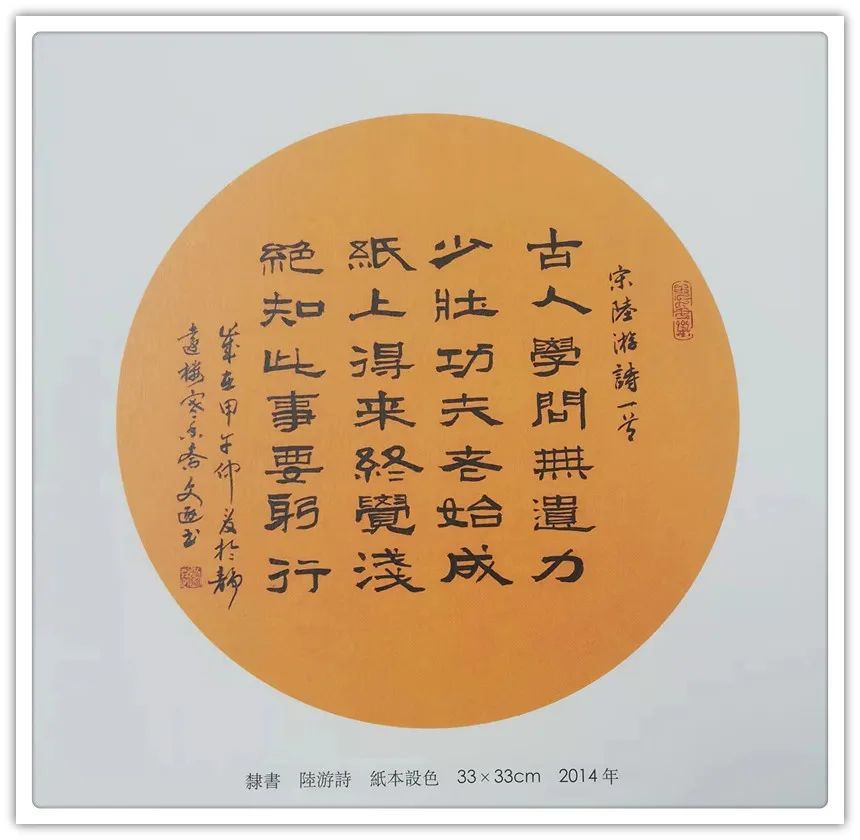 宋陸游詩一首
古人學問無遺力
少壯功夫老始成
紙上得来終覺淺
絶知此事要躬行
歲在甲午仲夏於靜
遠樓文書
隸書 陸游詩 紙本設色 33×33cm 2014年